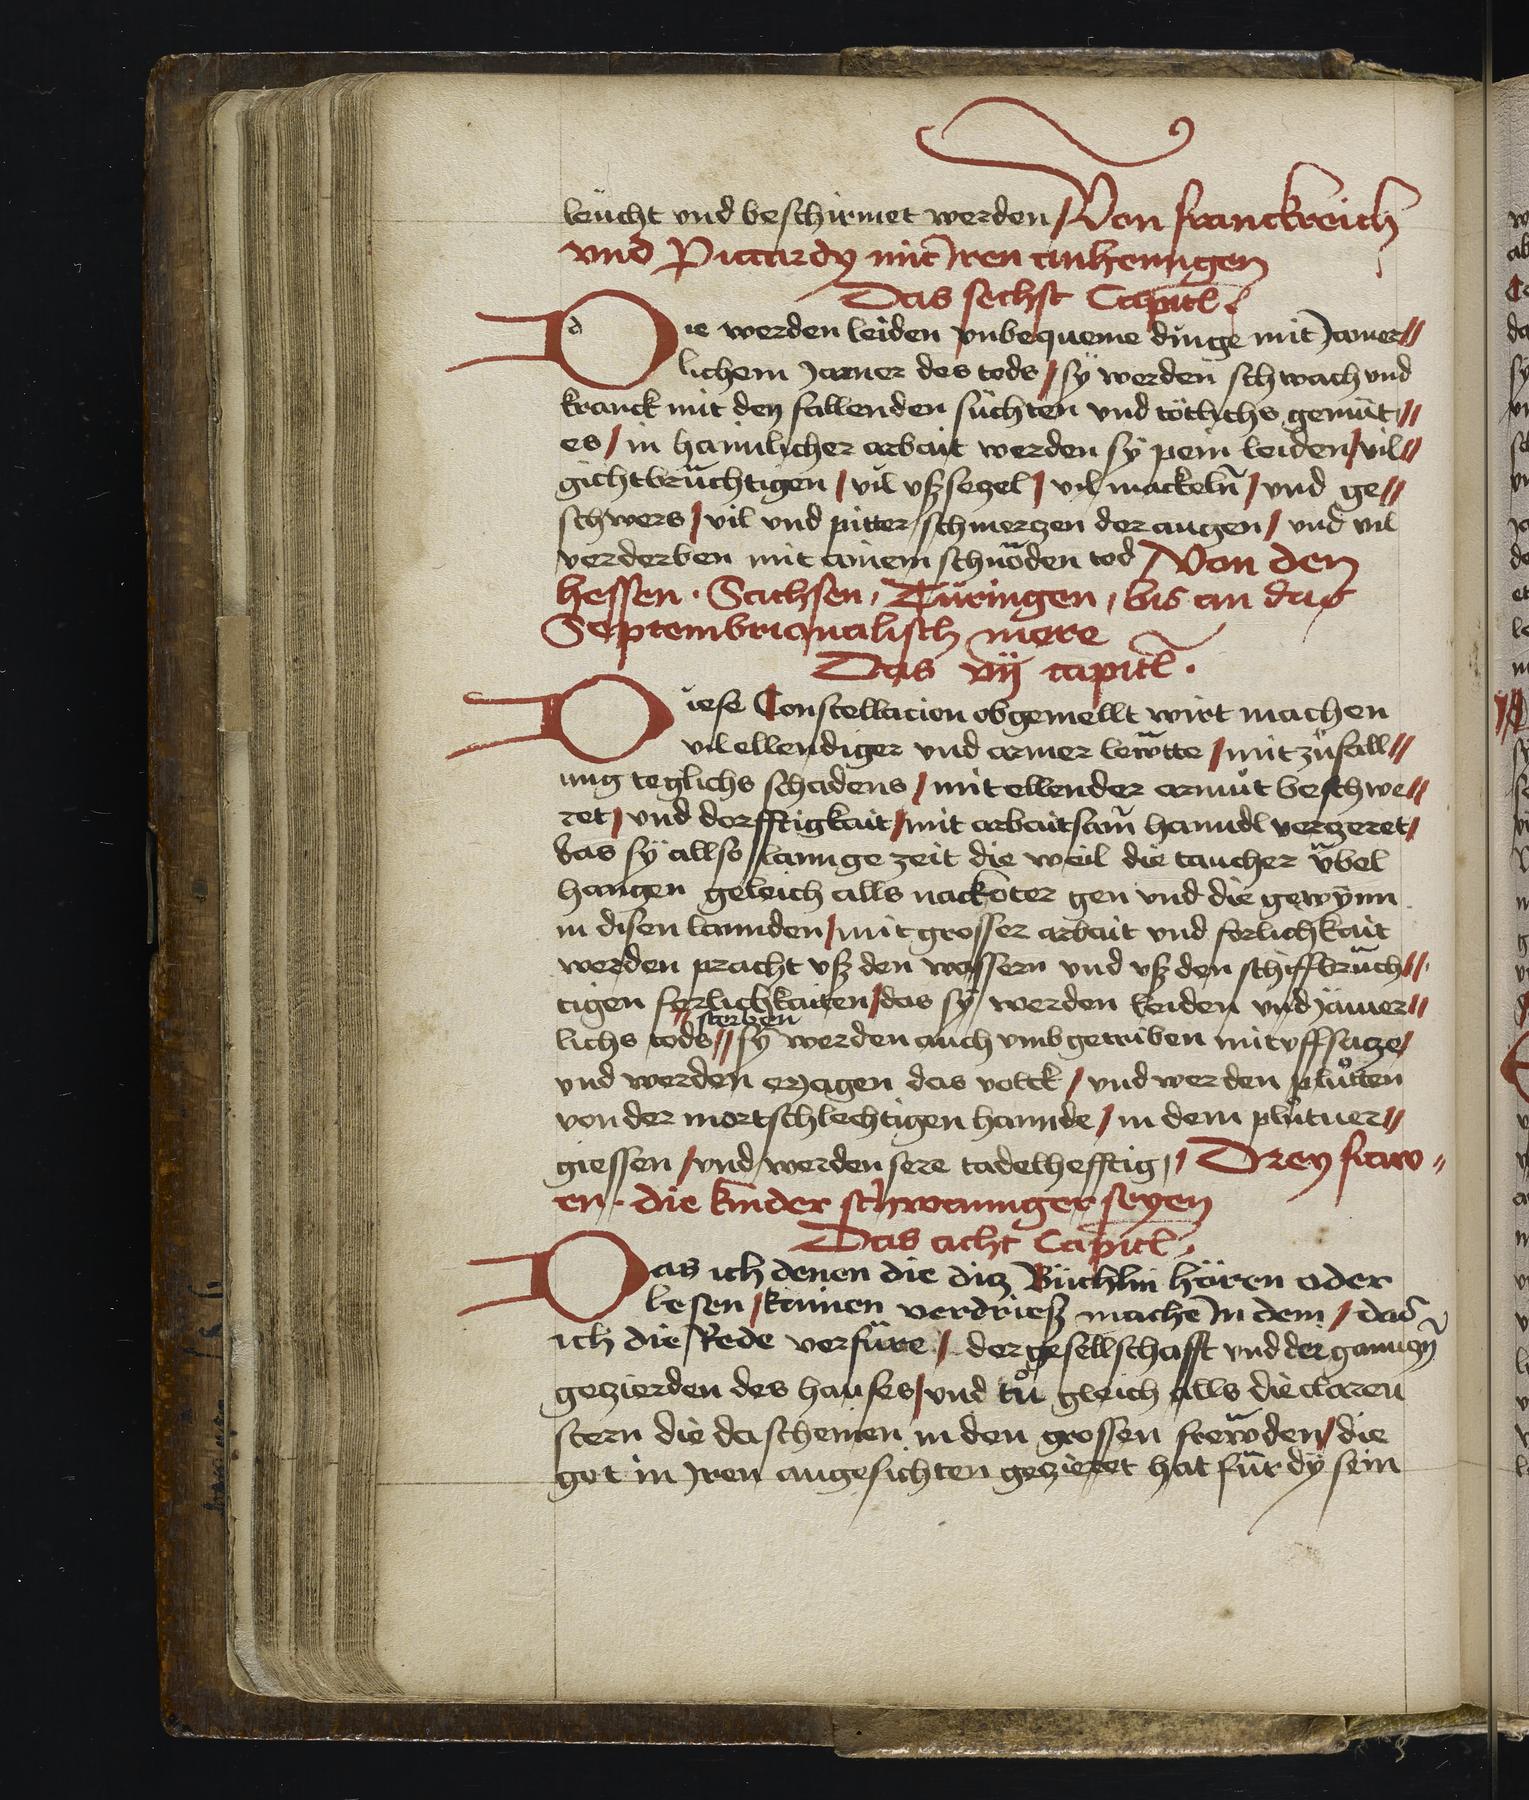 leücht vnd beschirmet werden / Von franckreich
vnd Piccardy mit Iren anhenngen
Das sechst Capitl
Die werden leiden vnbequeme dinge mit Jamer//
lichem Jamer des tods / sÿ werden schwach vnd
kranck mit den fallenden süchten vnd tötlichs gemüt//
es / in haimlicher arbait werden sÿ pein leiden / vil//
gichtbrüchtigen / vil vßsezel / vil mackeln / vnd ge//
schwers / vil vnd pitter schmerzen der augen / vnd vil
verderben mit ainem schnöden tod / Von den
hessen · Sachsen, Türingen, bis an das
Septembrionalisch mere
Das vij capitl ·
Diese Constellacion obgemellt wirt machen
vil ellendiger vnd armer lewtte / mit züfall//
ung teglichs schadens / mit ellender armüt beschwe//
ret / vnd dorfftigkait / mit arbaitsam hanndl verzeret /
das sÿ allso lannge zeit die weil die taucher übel
hangen geleich alls nackoter gen vnd die gewÿnn
in disen lannden / mit grosser arbait vnd ferlichkait
werden pracht vß den wassern vnd vß den schiffbrüch//
tigen ferlichkaiten / das sÿ werden leiden vnd Jämer//
sterben
lichs tods // sÿ werden auch vmbgetriben mit vffsatze /
vnd werden erJagen das volck / vnd werden plůtten
von der mortschlechtigen hannde / in dem plůtuer//
giessen / vnd werden sere tadelhefftig / Drey fraw//
en · die kinder schwannger seyen
Das acht Capitl
Das ich denen die diz Büchlin hören oder
lesen / kainen verdrieß mache In dem / das
ich die Rede verfüre / der gesellschafft vnd der ganngn
gezierden des hauses / vnd tů gleich alls die claren
stern die da scheinen in den grossen frewden / die
got in Jren angesichten gezieret hat für dÿ sein